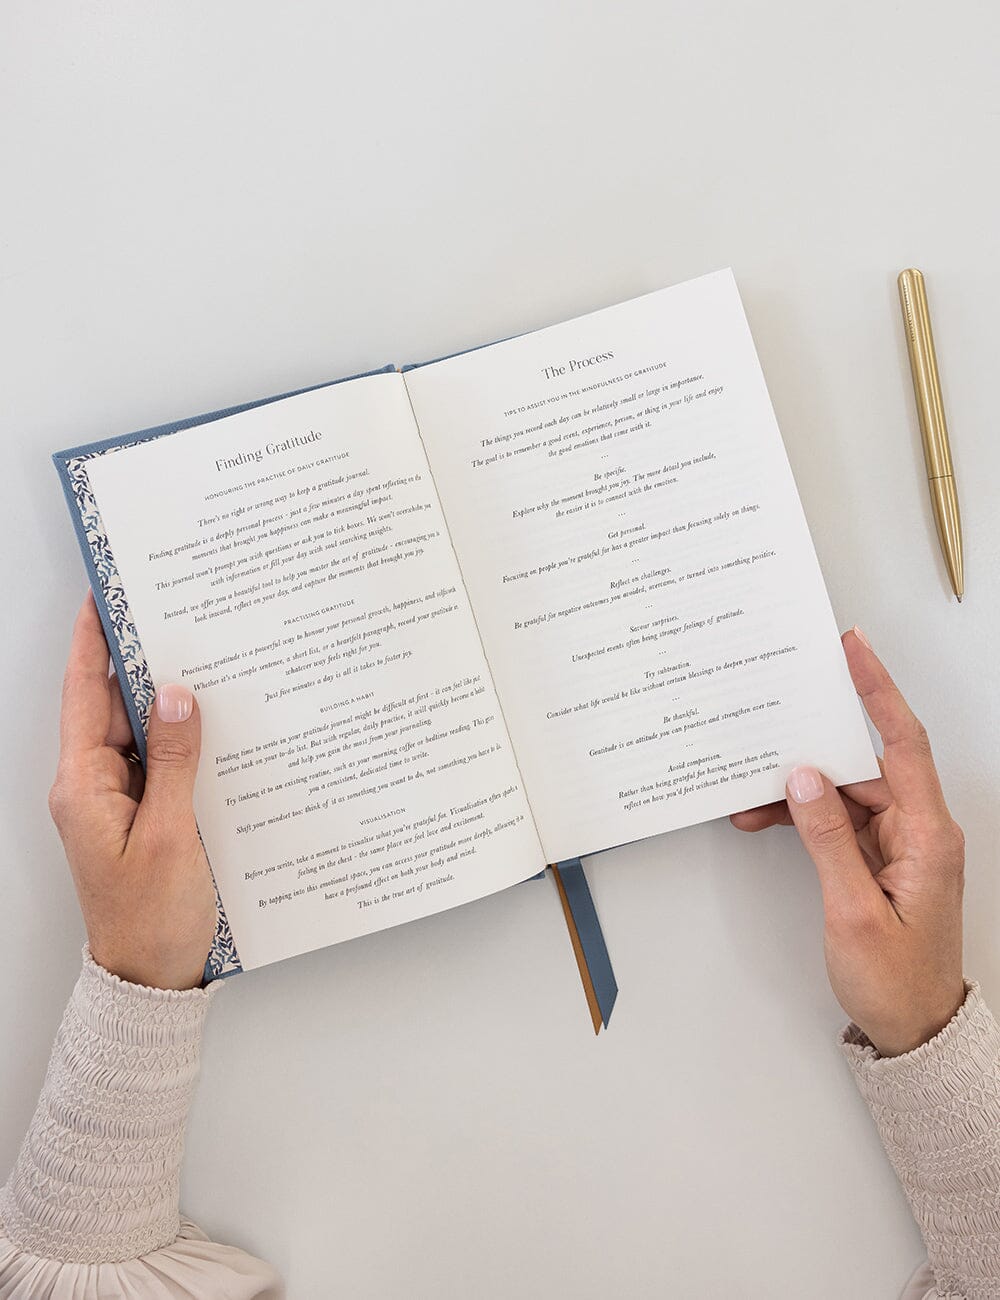 Finding Gratitude
HONOURING THE PRACTISE OF DAILY GRATITUDE
There's no right or wrong way to keep a gratitude journal.
Finding gratitude is a deeply personal process - just a few minutes a day spent reflecting on the
moments that brought you happiness can make a meaningful impact.
This journal won't prompt you with questions or ask you to tick boxes. We won't overwhelm you
with information or fill your day with soul searching insights.
Instead, we offer you a beautiful tool to help you master the art of gratitude - encouraging you to
look inward, reflect on your day, and capture the moments that brought you joy.
PRACTISING GRATITUDE
Practicing gratitude is a powerful way to honour your personal growth, happiness, and
Whether it's a simple sentence, a short list, or a heartfelt paragraph, record your gratitude in
whatever way feels right for you.
Just five minutes a day is all it takes to foster joy.
BUILDING A HABIT
Finding time to write in your gratitude journal might be difficult at first - it can feel like just
another task on your to-do list. But with regular, daily practice, it will quickly become a habit
and help you gain the most from your journaling.
Try linking it to an existing routine, such as your morning coffee or bedtime reading. This gives
you a consistent, dedicated time to write.
Shift your mindset too: think of it as something you want to do, not something you have to do.
VISUALISATION
Before you write, take a moment to visualise what you're grateful for. Visualisation often sparks a
feeling in the chest - the same place we feel love and excitement.
By tapping into this emotional space, you can access your gratitude more deeply, allowing it to
have a profound effect on both your body and mind.
This is the true art of gratitude.
The Process
TIPS TO ASSIST YOU IN THE MINDFULNESS OF GRATITUDE
The things you record each day can be relatively small or large in importance.
The goal is to remember a good event, experience, person, or thing in your life and enjoy
the good emotions that come with it.
...
Be specific.
Explore why the moment brought you joy. The more detail you include,
the easier it is to connect with the emotion.
...
Get personal.
Focusing on people you're grateful for has a greater impact than focusing solely on things.
...
Reflect on challenges.
Be grateful for negative outcomes you avoided, overcame, or turned into something positive.
...
Savour surprises.
Unexpected events often bring stronger feelings of gratitude.
...
Try subtraction.
Consider what life would be like without certain blessings to deepen your appreciation.
...
Be thankful.
Gratitude is an attitude you can practice and strengthen over time.
...
Avoid comparison.
Rather than being grateful for having more than others,
reflect on how you'd feel without the things you value.